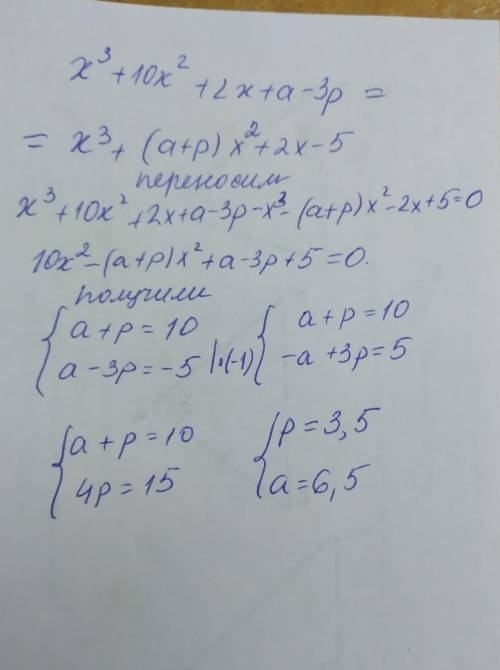 x³+10x²+2x+a-3p=
=x³+(a+p)x²+2x-5
переносим
x³+10x²+2x+a-3p-x³-(a+p)x²-2x+5=0
10x²-(a+p)x²+a-3p+5=0.
получили
{a+p=10 {a+p=10
{a-3p=-5 |·(-1) {-a+3p=5
{a+p=10 {p=3,5
{4p=15 {a=6,5